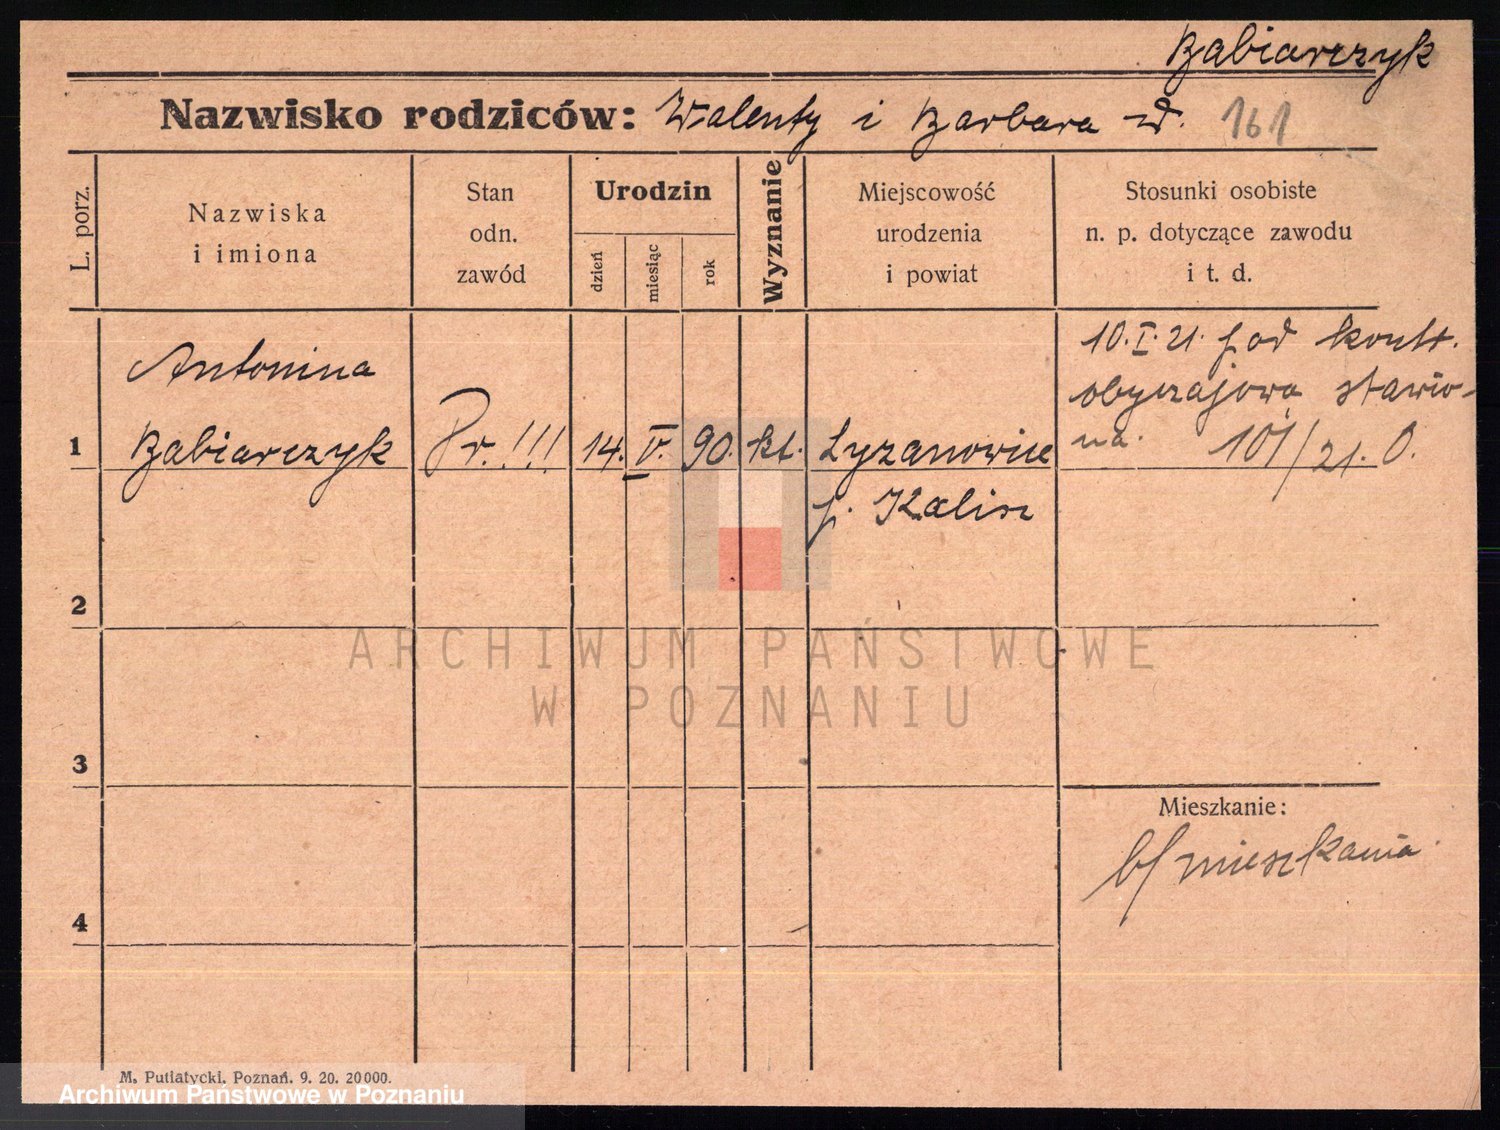 Babiarczyk
Nazwisko rodziców: Walenty i Barbara 161
L. porz.
Nazwiska
i imiona
Stan
odn.
zawód
Urodzin
dzień
miesiąc
rok
Wyznanie
Miejscowość
urodzenia
i powiat
Stosunki osobiste
n. p. dotyczące zawodu
i t. d.
1
Antonina
Babiarczyk
Pr. !!!
14.
V.
90.
kt.
Lyzanowice
p. Kalisz
10.I.21. pod kontr.
obyczajową stawio-
na. 101/21. O.
2
3
4
Mieszkanie:
b/mieszkania
ARCHIWUM PAŃSTWOWE
W POZNANIU
M. Putiatycki, Poznań. 9. 20. 20000.
Archiwum Państwowe w Poznaniu